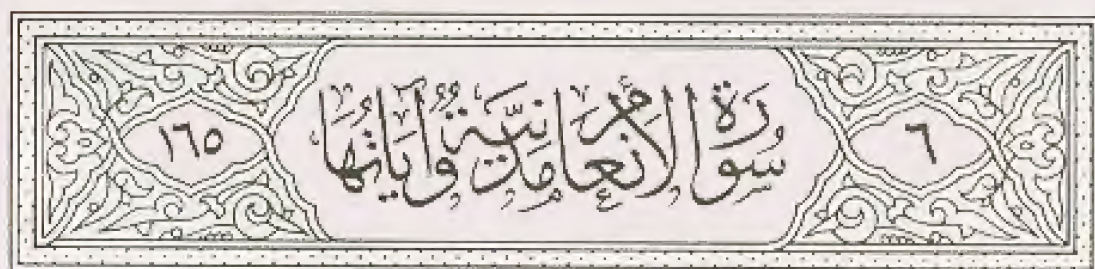 ٦ سُورَةُ الأنْعَامِ مَدَنِيَّة وَآيَاتُهَا ١٦٥